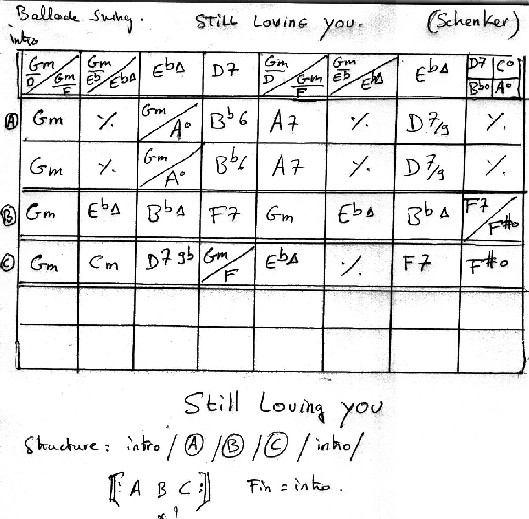 Ballade Swing. STILL LOVING YOU. (Schenker)
intro
Gm/D Gm/F Gm/Eb EbΔ EbΔ D7 Gm/D Gm/F Gm/Eb EbΔ EbΔ D7 C° Bb° A°
A Gm ٪ Gm A° Bb6 A7 ٪ D7/9 ٪
Gm ٪ Gm A° Bb6 A7 ٪ D7/9 ٪
B Gm EbΔ BbΔ F7 Gm EbΔ BbΔ F7 F#°
C Gm Cm D7 9b Gm/F EbΔ ٪ F7 F#°
Still Loving you
Structure : intro / A / B / C / intro /
[: A B C :] Fin = intro.